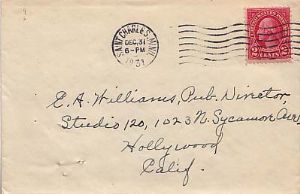 SAINT CHARLES, MINN.
DEC 31
6-PM
1931
2 CENTS 2
E. A. Williams, Pub. Director,
Studio 120, 1023 N. Sycamore Ave
Hollywood
Calif.